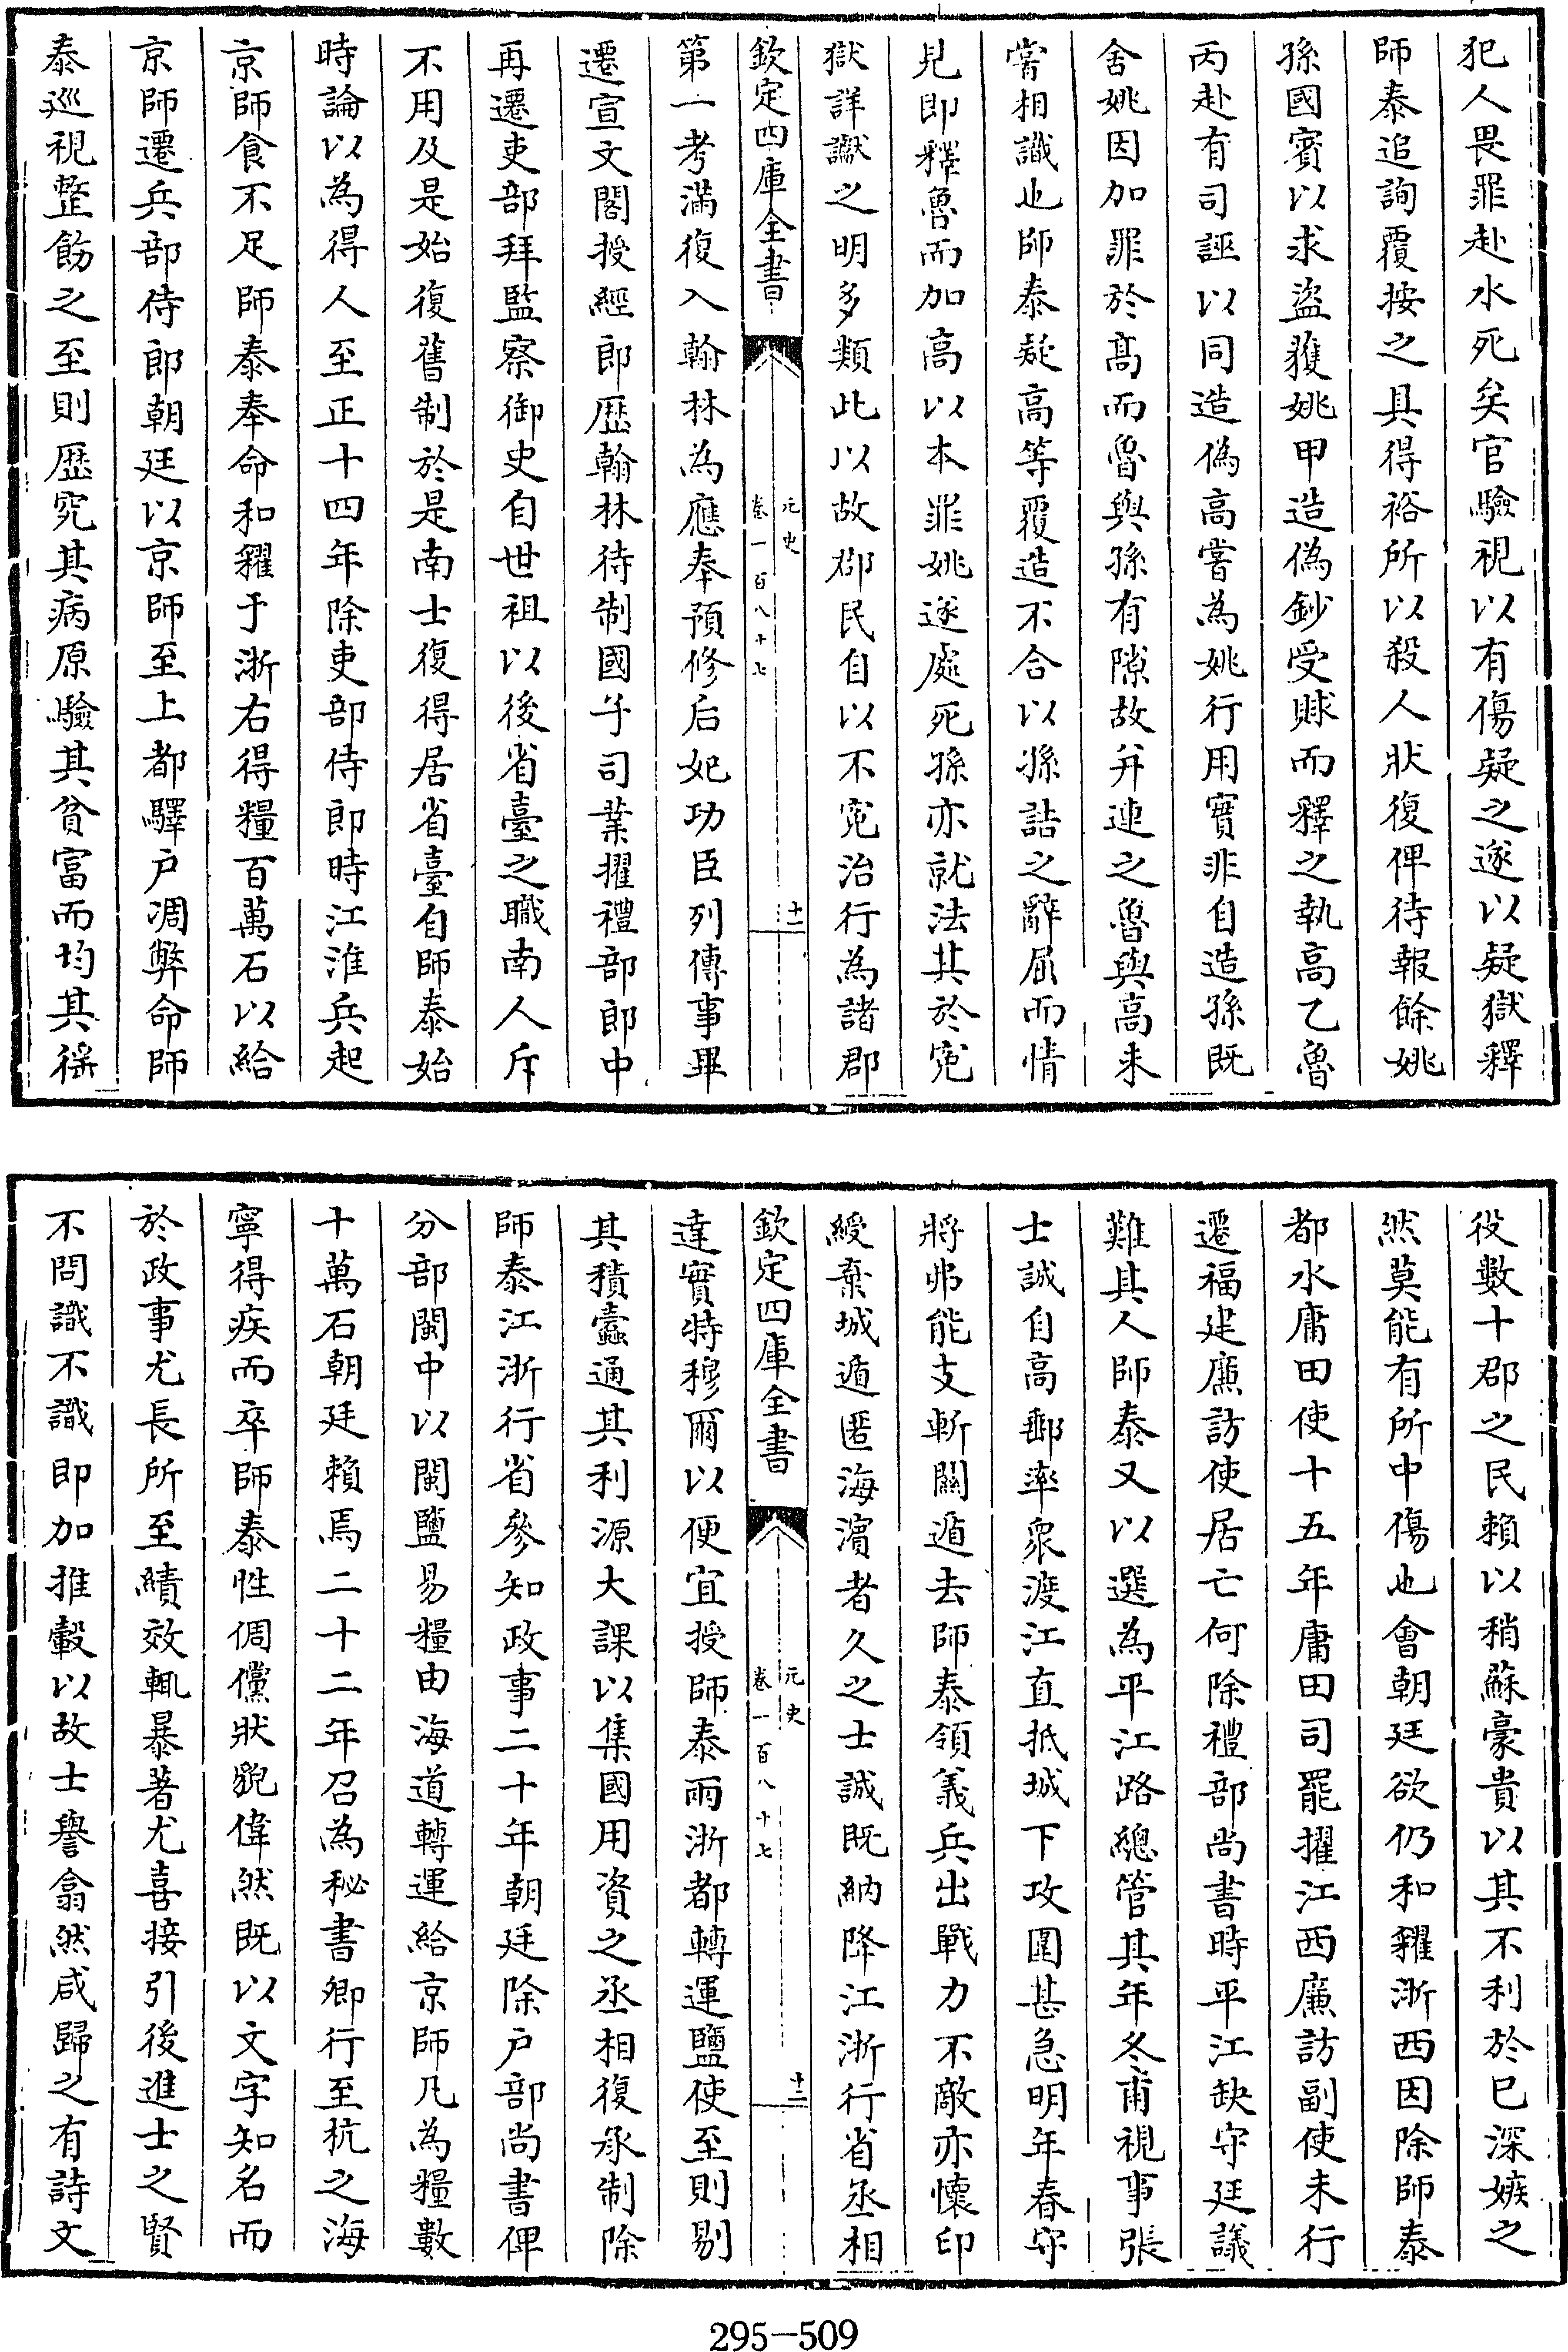 犯人畏罪赴水死矣官驗視以有傷疑之遂以疑獄釋
師泰追詢覆按之具得裕所以殺人狀復俾待報餘姚
孫國賓以求盜獲姚甲造偽鈔受賕而釋之執高乙魯
丙赴有司誣以同造偽高嘗為姚行用實非自造孫既
舍姚因加罪於髙而魯與孫有隙故并連之魯與高未
嘗相識也師泰疑高等覆造不合以孫詰之辭屈而情
見即釋魯而加高以本罪姚遂處死孫亦就法其於寃
獄詳讞之明多類此以故郡民自以不寃治行為諸郡
欽定四庫全書
元史
卷一百八十七
十一
第一考滿復入翰林為應奉預修后妃功臣列傳事畢
遷宣文閣授經郎歴翰林待制國子司業擢禮部郎中
再遷吏部拜監察御史自世祖以後省臺之職南人斥
不用及是始復舊制於是南士復得居省臺自師泰始
時論以為得人至正十四年除吏部侍郎時江淮兵起
京師食不足師泰奉命和糴于浙右得糧百萬石以給
京師遷兵部侍郎朝廷以京師至上都驛户凋弊命師
泰巡視整飭之至則歴究其病原驗其貧富而均其徭
役數十郡之民賴以稍蘇豪貴以其不利於已深嫉之
然莫能有所中傷也會朝廷欲仍和糴浙西因除師泰
都水庸田使十五年庸田司罷擢江西廉訪副使未行
遷福建廉訪使居亡何除禮部尚書時平江缺守廷議
難其人師泰又以選為平江路總管其年冬甫視事張
士誠自高郵率衆渡江直抵城下攻圍甚急明年春守
將弗能支斬關遁去師泰領義兵出戰力不敵亦懷印
綬棄城遁匿海濵者久之士誠既納降江浙行省丞相
欽定四庫全書
元史
卷一百八十七
十二
達實特穆爾以便宜授師泰兩浙都轉運鹽使至則剔
其積蠧通其利源大課以集國用資之丞相復承制除
師泰江浙行省參知政事二十年朝廷除户部尚書俾
分部閩中以閩鹽易糧由海道轉運給京師凡為糧數
十萬石朝廷賴焉二十二年召為秘書卿行至杭之海
寧得疾而卒師泰性倜儻狀貌偉然既以文字知名而
於政事尤長所至績效輒暴著尤喜接引後進士之賢
不問識不識即加推轂以故士譽翕然咸歸之有詩文
295-509